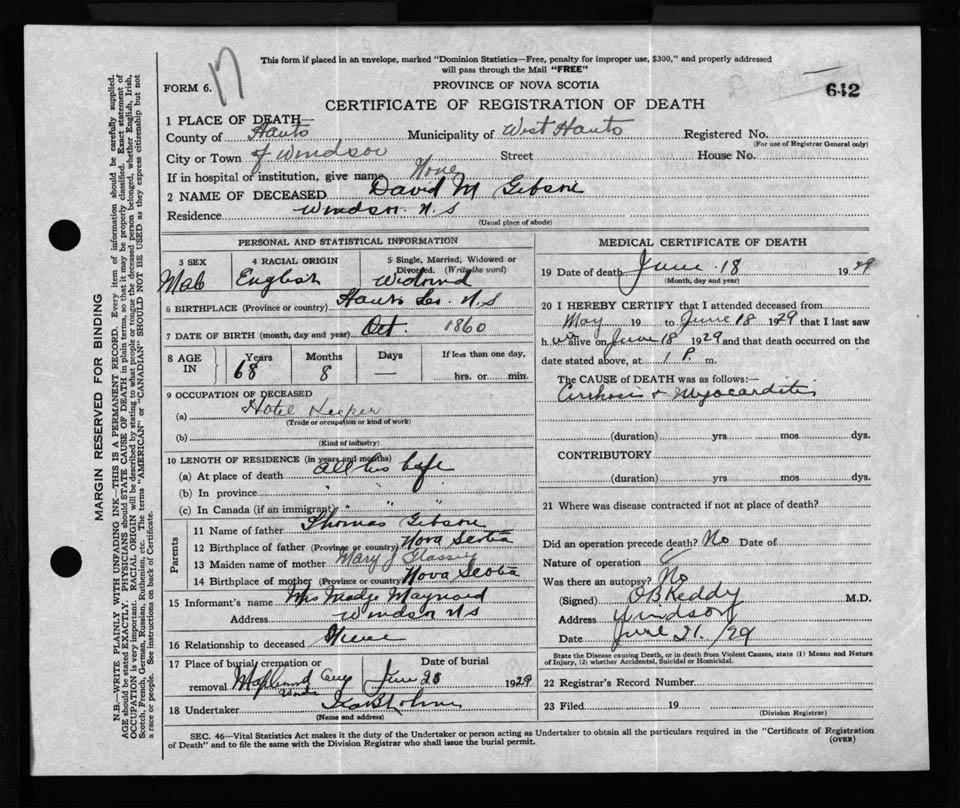 This form if placed in an envelope, marked "Dominion Statistics—Free, penalty for improper use, $300," and properly addressed
will pass through the Mail "FREE"
17
FORM 6.
PROVINCE OF NOVA SCOTIA
642
CERTIFICATE OF REGISTRATION OF DEATH
1 PLACE OF DEATH—
County of Hants Municipality of West Hants Registered No.
(For use of Registrar General only)
City or Town of Windsor Street House No.
If in hospital or institution, give name None
2 NAME OF DECEASED David M Gibson
Residence Windsor. N.S
(Usual place of abode)
PERSONAL AND STATISTICAL INFORMATION
3 SEX 4 RACIAL ORIGIN 5 Single, Married, Widowed or
Divorced. (Write the word)
Male English Widowed
6 BIRTHPLACE (Province or country) Hants Co. N.S
7 DATE OF BIRTH (month, day and year) Oct. 1860
8 AGE IN Years Months Days If less than one day,
68 8 — hrs. or min.
9 OCCUPATION OF DECEASED
(a) Hotel Keeper
(Trade or occupation or kind of work)
(b)
(Kind of industry)
10 LENGTH OF RESIDENCE (in years and months)
(a) At place of death all his life
(b) In province " " "
(c) In Canada (if an immigrant) " " "
Parents
11 Name of father Thomas Gibson
12 Birthplace of father (Province or country) Nova Scotia
13 Maiden name of mother Mary J
14 Birthplace of mother (Province or country) Nova Scotia
15 Informant's name Mrs Madge Maynard
Address Windsor N.S
16 Relationship to deceased Niece
17 Place of burial cremation or Date of burial
removal Maplewood June 1929
18 Undertaker
(Name and address)
MEDICAL CERTIFICATE OF DEATH
19 Date of death June 18 1929
(Month, day and year)
20 I HEREBY CERTIFY that I attended deceased from
May 19 to June 18 1929 that I last saw
h alive on June 18 1929 and that death occurred on the
date stated above, at 1 P. m.
The CAUSE OF DEATH was as follows:—
Cirrhosis & Myocarditis
(duration) yrs mos dys.
CONTRIBUTORY
(duration) yrs. mos. dys.
21 Where was disease contracted if not at place of death?
Did an operation precede death? No Date of
Nature of operation
Was there an autopsy? No
(Signed) O B Keddy M.D.
Address Windsor
Date June 21. /29
State the Disease causing Death, or in death from Violent Causes, state (1) Means and Nature
of Injury, (2) whether Accidental, Suicidal or Homicidal.
22 Registrar's Record Number
23 Filed 19
(Division Registrar)
SEC. 46—Vital Statistics Act makes it the duty of the Undertaker or person acting as Undertaker to obtain all the particulars required in the "Certificate of Registration
of Death" and to file the same with the Division Registrar who shall issue the burial permit.
(OVER)
MARGIN RESERVED FOR BINDING
N.B.—WRITE PLAINLY WITH UNFADING INK—THIS IS A PERMANENT RECORD. Every item of information should be carefully supplied.
AGE should be stated EXACTLY. PHYSICIANS should STATE CAUSE OF DEATH in plain terms, so that it may be properly classified. Exact statement of
OCCUPATION is very important. RACIAL ORIGIN will be described by stating to what people or tongue the deceased person belonged, whether English, Irish,
Scotch, French, German, Russian, Ruthenian, etc. The terms "AMERICAN" or "CANADIAN" SHOULD NOT BE USED as they express citizenship but not
a race or people. See instructions on back of Certificate.